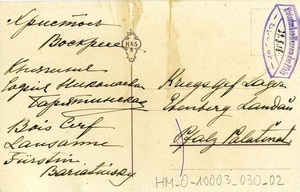 Христосъ
Воскресе
Княгиня
Марія Николаевна
Барятинская
Bois Cerf
Lausanne
Fürstin
Bariatinsky
Kriegsgef Lager
Ebenberg Landau
Pfalz Palatinat
HM-0-10003-030-02